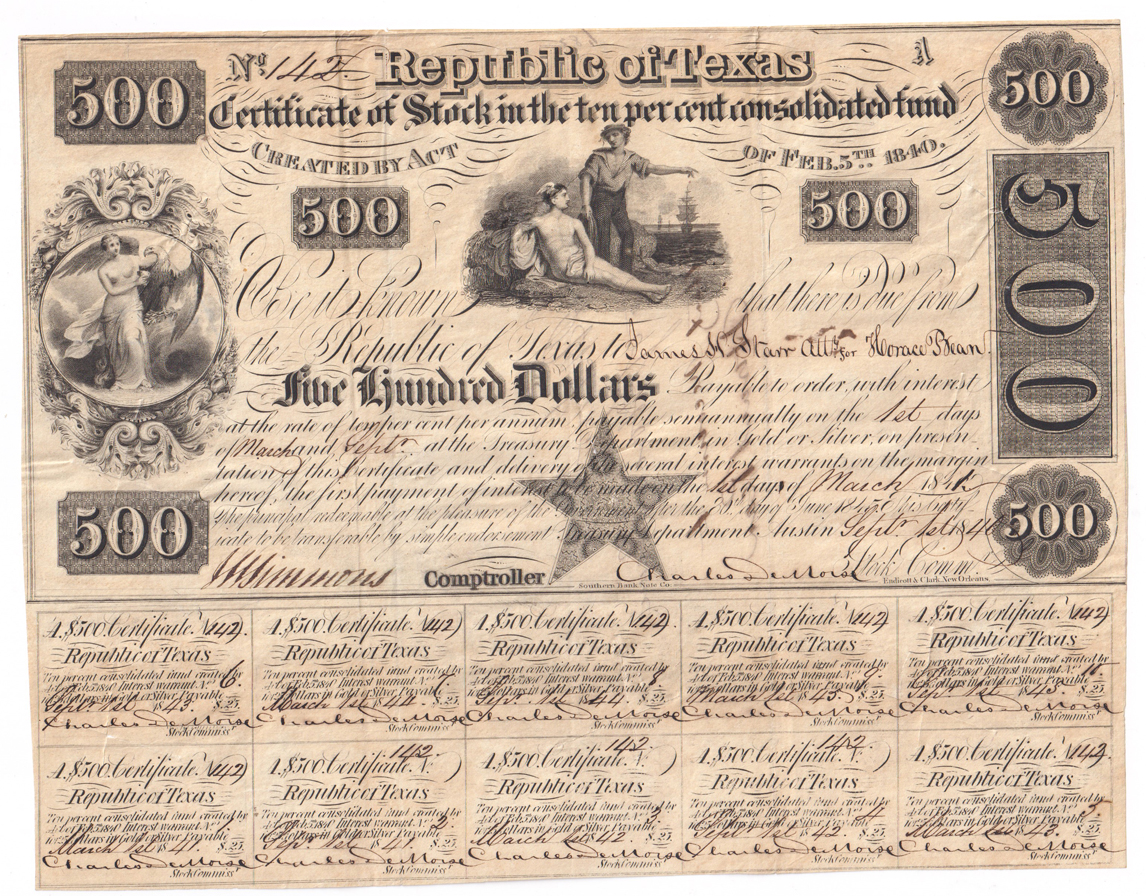 No. 142 Republic of Texas A
500 Certificate of Stock in the ten per cent consolidated fund 500
Created by Act of Feb. 5th. 1840.
500 500
500
Be it known that there is due from
the Republic of Texas to James H. Starr Atty for Horace Bean
Five Hundred Dollars. Payable to order, with interest
at the rate of ten per cent per annum payable semiannually on the 1st days
of March and Sept. at the Treasury Department in Gold or Silver, on presen-
tation of this Certificate and delivery of the several interest warrants on the margin
hereof, the first payment of interest to be made on the 1st day of March 1841.
The principal redeemable at the pleasure of the Government after the day of June 1845
cate to be transferable by simple endorsement Treasury Department Austin Sept. 1st 1840
500 500
Stock Comm.
Comptroller Charles DeMorse
Southern Bank Note Co. Endicott & Clark, New Orleans.
A. $500. Certificate. N 142.
Republic of Texas
Ten per cent consolidated fund created by
Act of Feb. 5 1840 Interest warrant No. 6.
Dollars in Gold or Silver, Payable
Sept. 1st 1843. $.25.
Charles DeMorse
Stock Commiss.
A. $500. Certificate. N 142
Republic of Texas
Ten per cent consolidated fund created by
Act of Feb. 5 1840 Interest warrant No.
Dollars in Gold or Silver, Payable
March 1st 1844. $.25.
Charles DeMorse
Stock Commiss.
A. $500. Certificate. N 142.
Republic of Texas
Ten per cent consolidated fund created by
Act of Feb. 5 1840 Interest warrant No. 8
Dollars in Gold or Silver, Payable
Sept. 1st 1844. $.25.
Charles DeMorse
Stock Commiss.
A. $500. Certificate. N 142
Republic of Texas
Ten per cent consolidated fund created by
Act of Feb. 5 1840 Interest warrant No. 9.
Dollars in Gold or Silver, Payable
March 1st 1845. $.25.
Charles DeMorse
Stock Commiss.
A. $500. Certificate. N 142.
Republic of Texas
Ten per cent consolidated fund created by
Act of Feb. 5 1840 Interest warrant No.
Dollars in Gold or Silver, Payable
Sept. 1st 1845. $.25.
Charles DeMorse
Stock Commiss.
A. $500. Certificate. N 142
Republic of Texas
Ten per cent consolidated fund created by
Act of Feb. 5 1840 Interest warrant No.
Dollars in Gold or Silver, Payable
March 1st 1841. $.25.
Charles DeMorse
Stock Commiss.
A. $500. Certificate. N. 142
Republic of Texas
Ten per cent consolidated fund created by
Act of Feb. 5 1840 Interest warrant No. 2.
Dollars in Gold or Silver, Payable
Sept. 1st 1841. $.25.
Charles DeMorse
Stock Commiss.
A. $500. Certificate. N 142.
Republic of Texas
Ten per cent consolidated fund created by
Act of Feb. 5 1840 Interest warrant No. 3.
Dollars in Gold or Silver, Payable
March 1st $.25.
Charles DeMorse
Stock Commiss.
A. $500. Certificate. N 142.
Republic of Texas
Ten per cent consolidated fund created by
Act of Feb. 5 1840 Interest warrant No.
Dollars in Gold or Silver, Payable
1st 1842. $.25.
Charles DeMorse
Stock Commiss.
A. $500. Certificate. N 142.
Republic of Texas
Ten per cent consolidated fund created by
Act of Feb. 5 1840 Interest warrant No. 5.
Dollars in Gold or Silver, Payable
March 1st 1843. $.25.
Charles DeMorse
Stock Commiss.